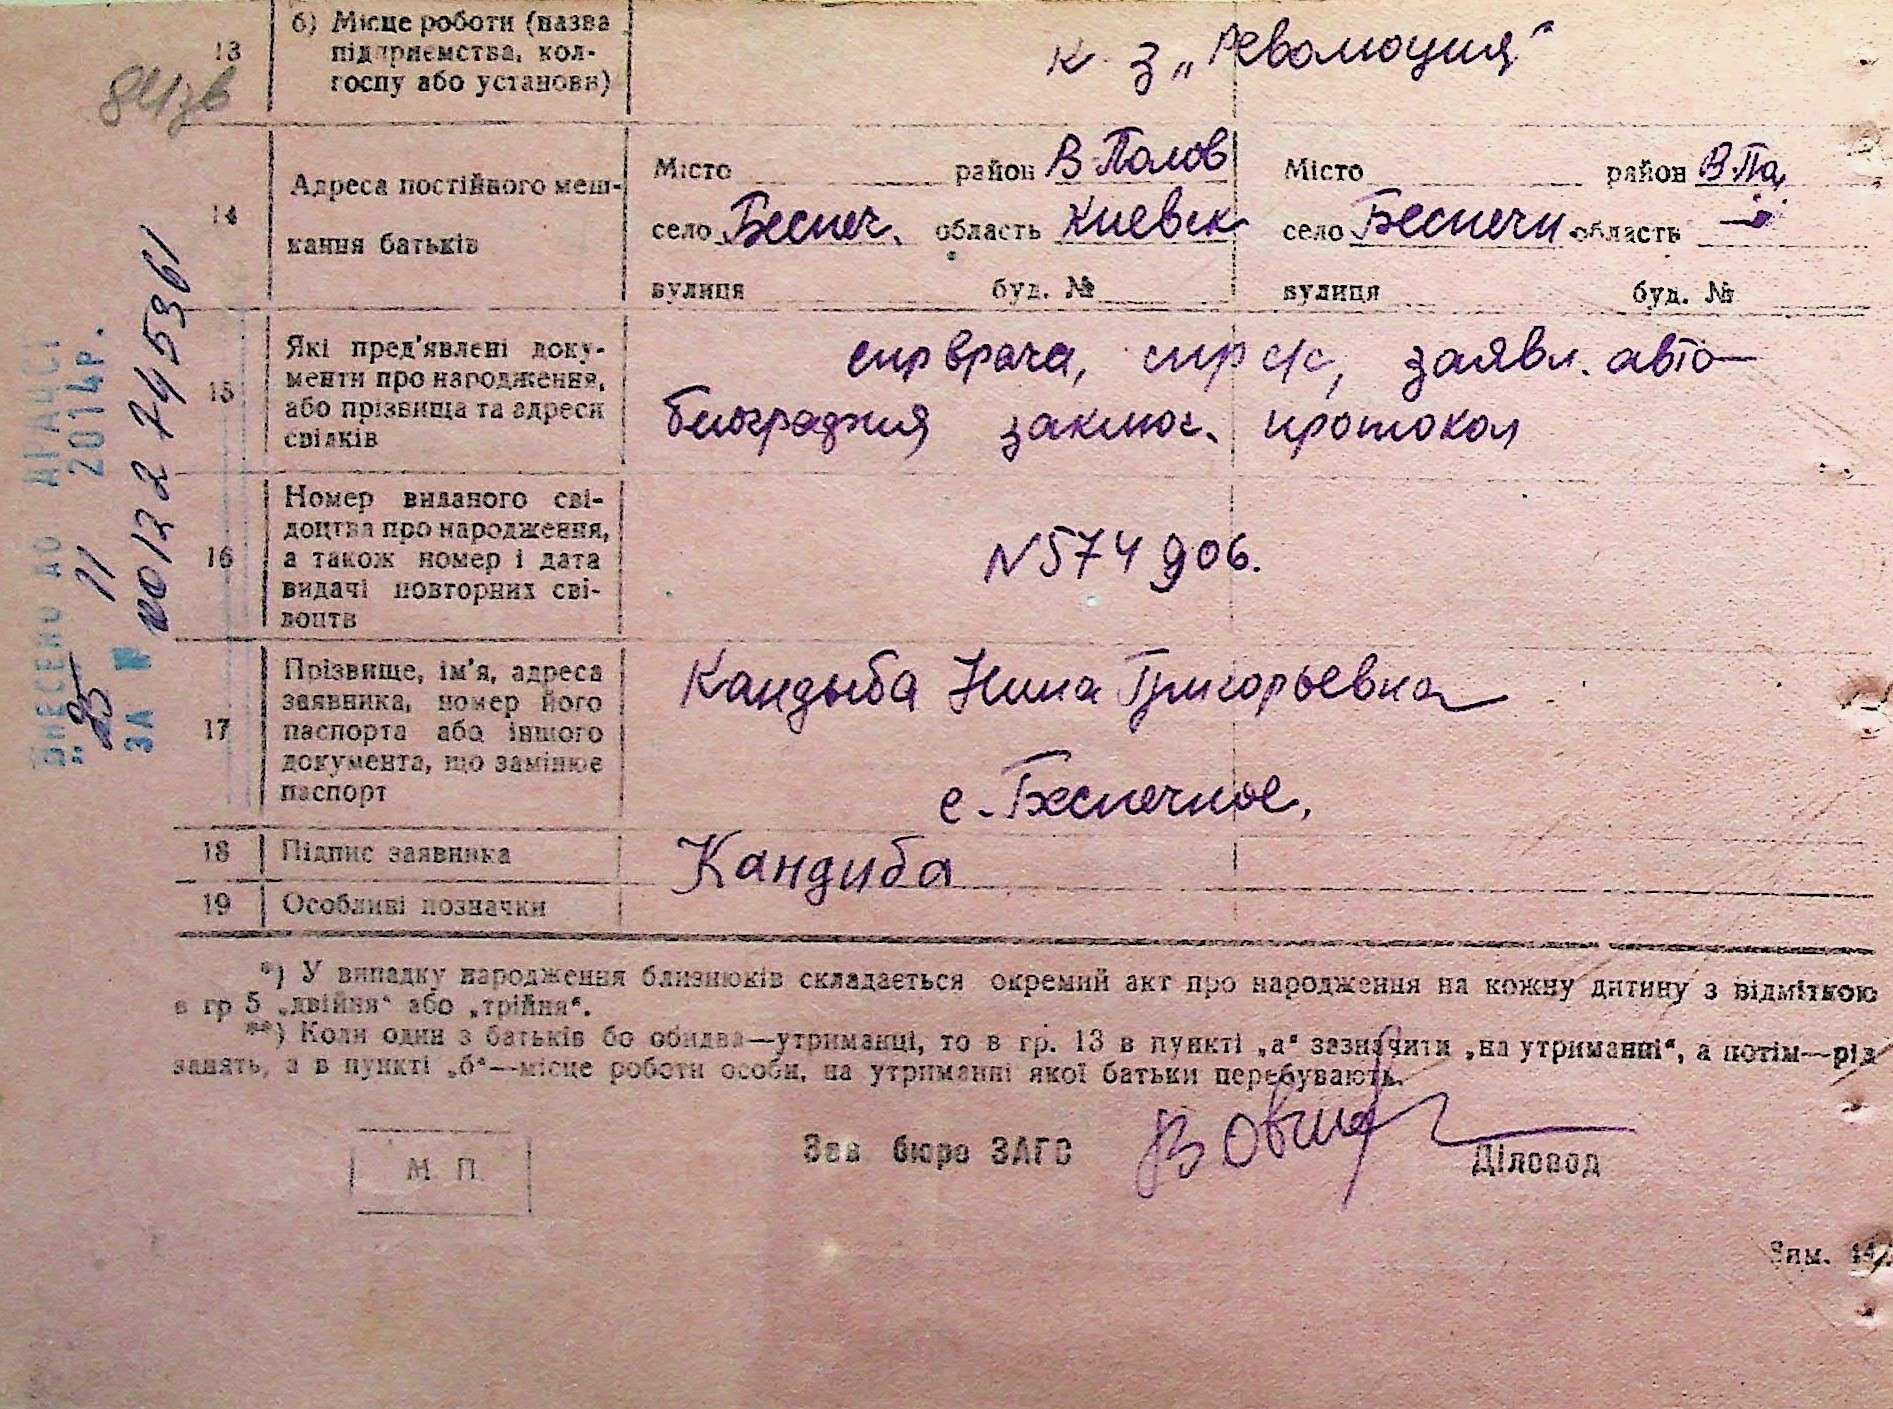 13
б) Місце роботи (назва
підприємства, кол-
госпу або установи)
к-з „Революция“
14
Адреса постійного меш-
кання батьків
Місто район В-Полов
село Беспеч. область Киевск
вулиця буд. №
Місто район В.По.
село Беспечн. область —"—
вулиця буд. №
15
Які пред'явлені доку-
менти про народження,
або прізвища та адреси
свідків
спр врача, спр с/с, заявл. авто-
биография заключ. протокол
16
Номер виданого сві-
доцтва про народження,
а також номер і дата
видачі повторних сві-
доцтв
N 574906.
17
Прізвище, ім'я, адреса
заявника, номер його
паспорта або іншого
документа, що замінює
паспорт
Кандыба Нина Григорьевна
с. Беспечное.
18
Підпис заявника
Кандиба
19
Особливі позначки
*) У випадку народження близнюків складається окремий акт про народження на кожну дитину з відміткою
в гр 5 „двійня“ або „трійня“.
**) Коли один з батьків бо обидва—утриманці, то в гр. 13 в пункті „а“ зазначити „на утриманні“, а потім—рід
занять, а в пункті „б“—місце роботи особи, на утриманні якої батьки перебувають.
М. П.
Зав бюро ЗАГС
Діловод
Зам.
ВНЕСЕНО ДО ДРАЦСГ
„25 11 2014р.
ЗА № 00122745361